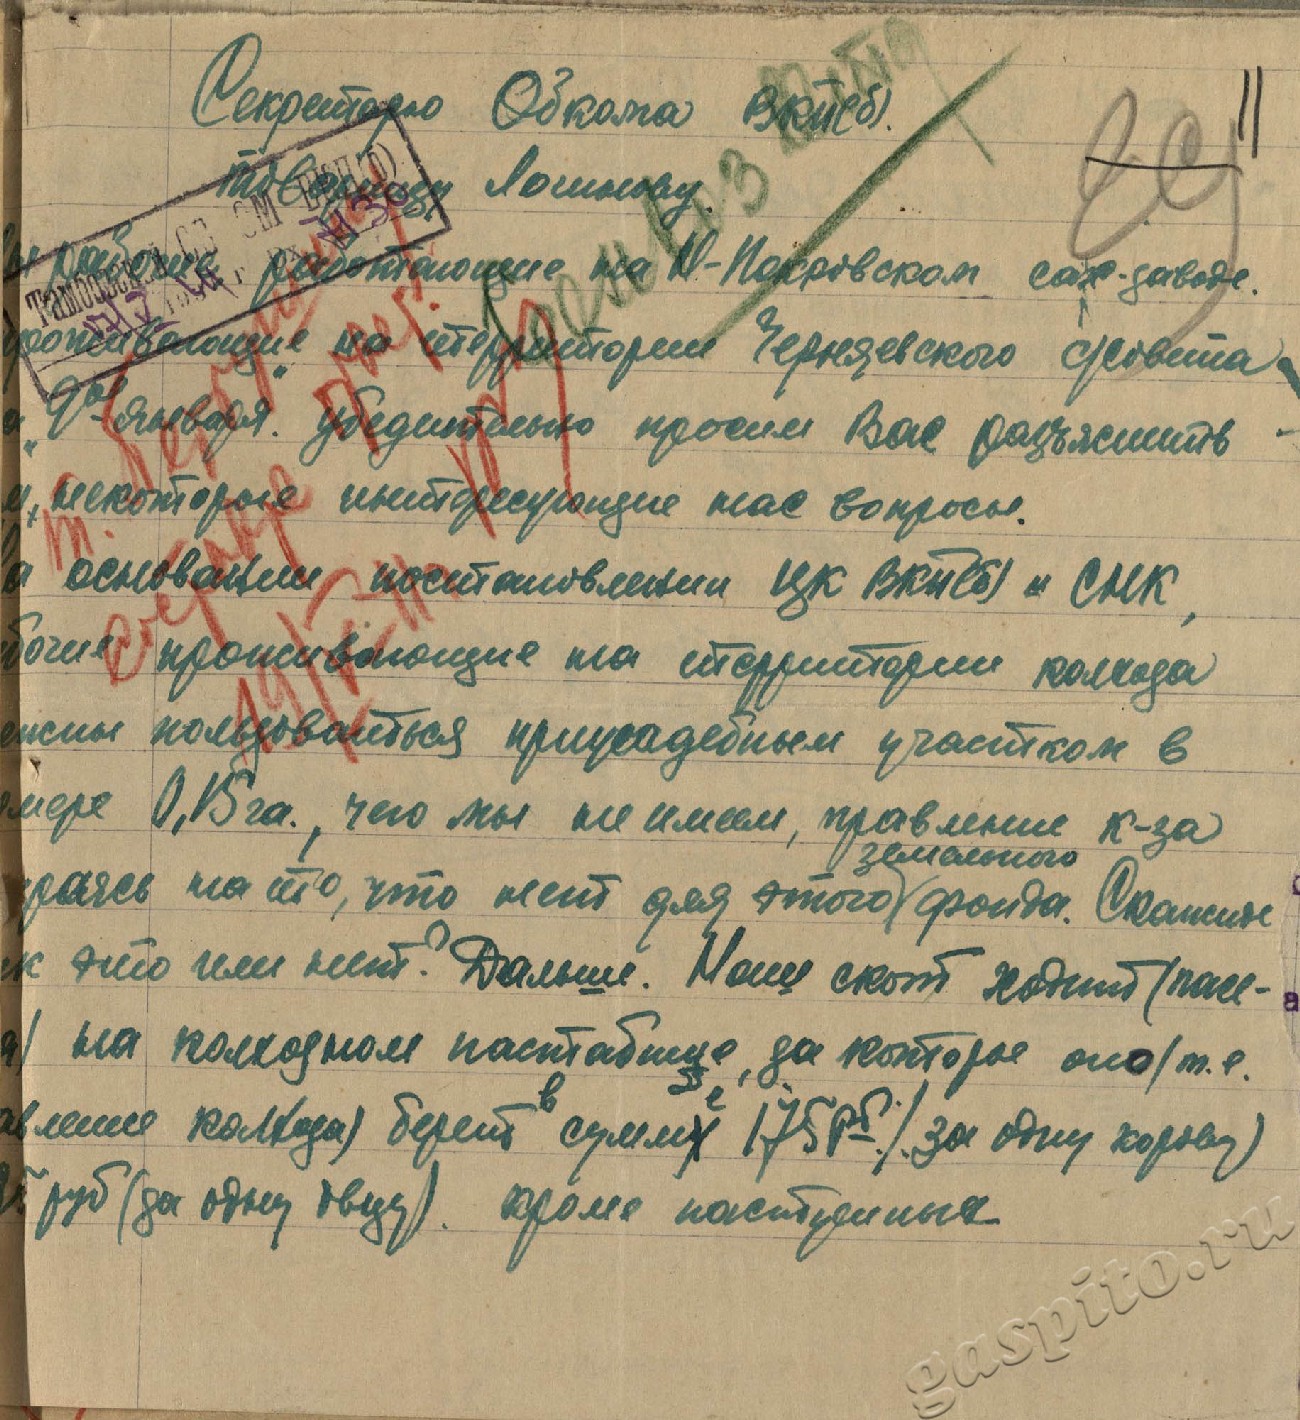 Секретарю Обкома ВКП(б).
товарищу Логинову.
ы рабочие работающие на Н-Покровском сах-заводе.
роживающие на территории Черняевского с/совета
а "9ое января". убедительно просим Вас разъяснить
м, некоторые интересующие нас вопросы.
а основании постановлении ЦК ВКП(б) и СНК,
бочие проживающие на территории колхоза
жны пользоваться приусадебным участком в
змере 0,15 га., чего мы не имеем, правление к-за
земельного
ираясь на то, что нет для этого фонда. Скажите
к это или нет? Дальше. Наш скот ходит (пасе-
я) на колхозном пастбище, за которые оно (т.е.
авление колхоза) берет в сумме 175 рб. (за одну корову)
руб (за одну овцу). кроме пастушных
11
gaspito.ru